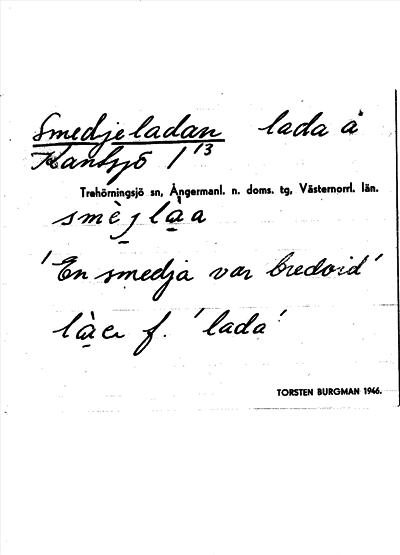 Smedjeladan lada å
Kantsjö 1/13
Trehörningsjö sn, Ångermanl. n. doms. tg, Västernorrl. län.
smèj̱lạ̀a
'En smedja var bredvid'
lạ̀a f. 'lada'
TORSTEN BURGMAN 1946.